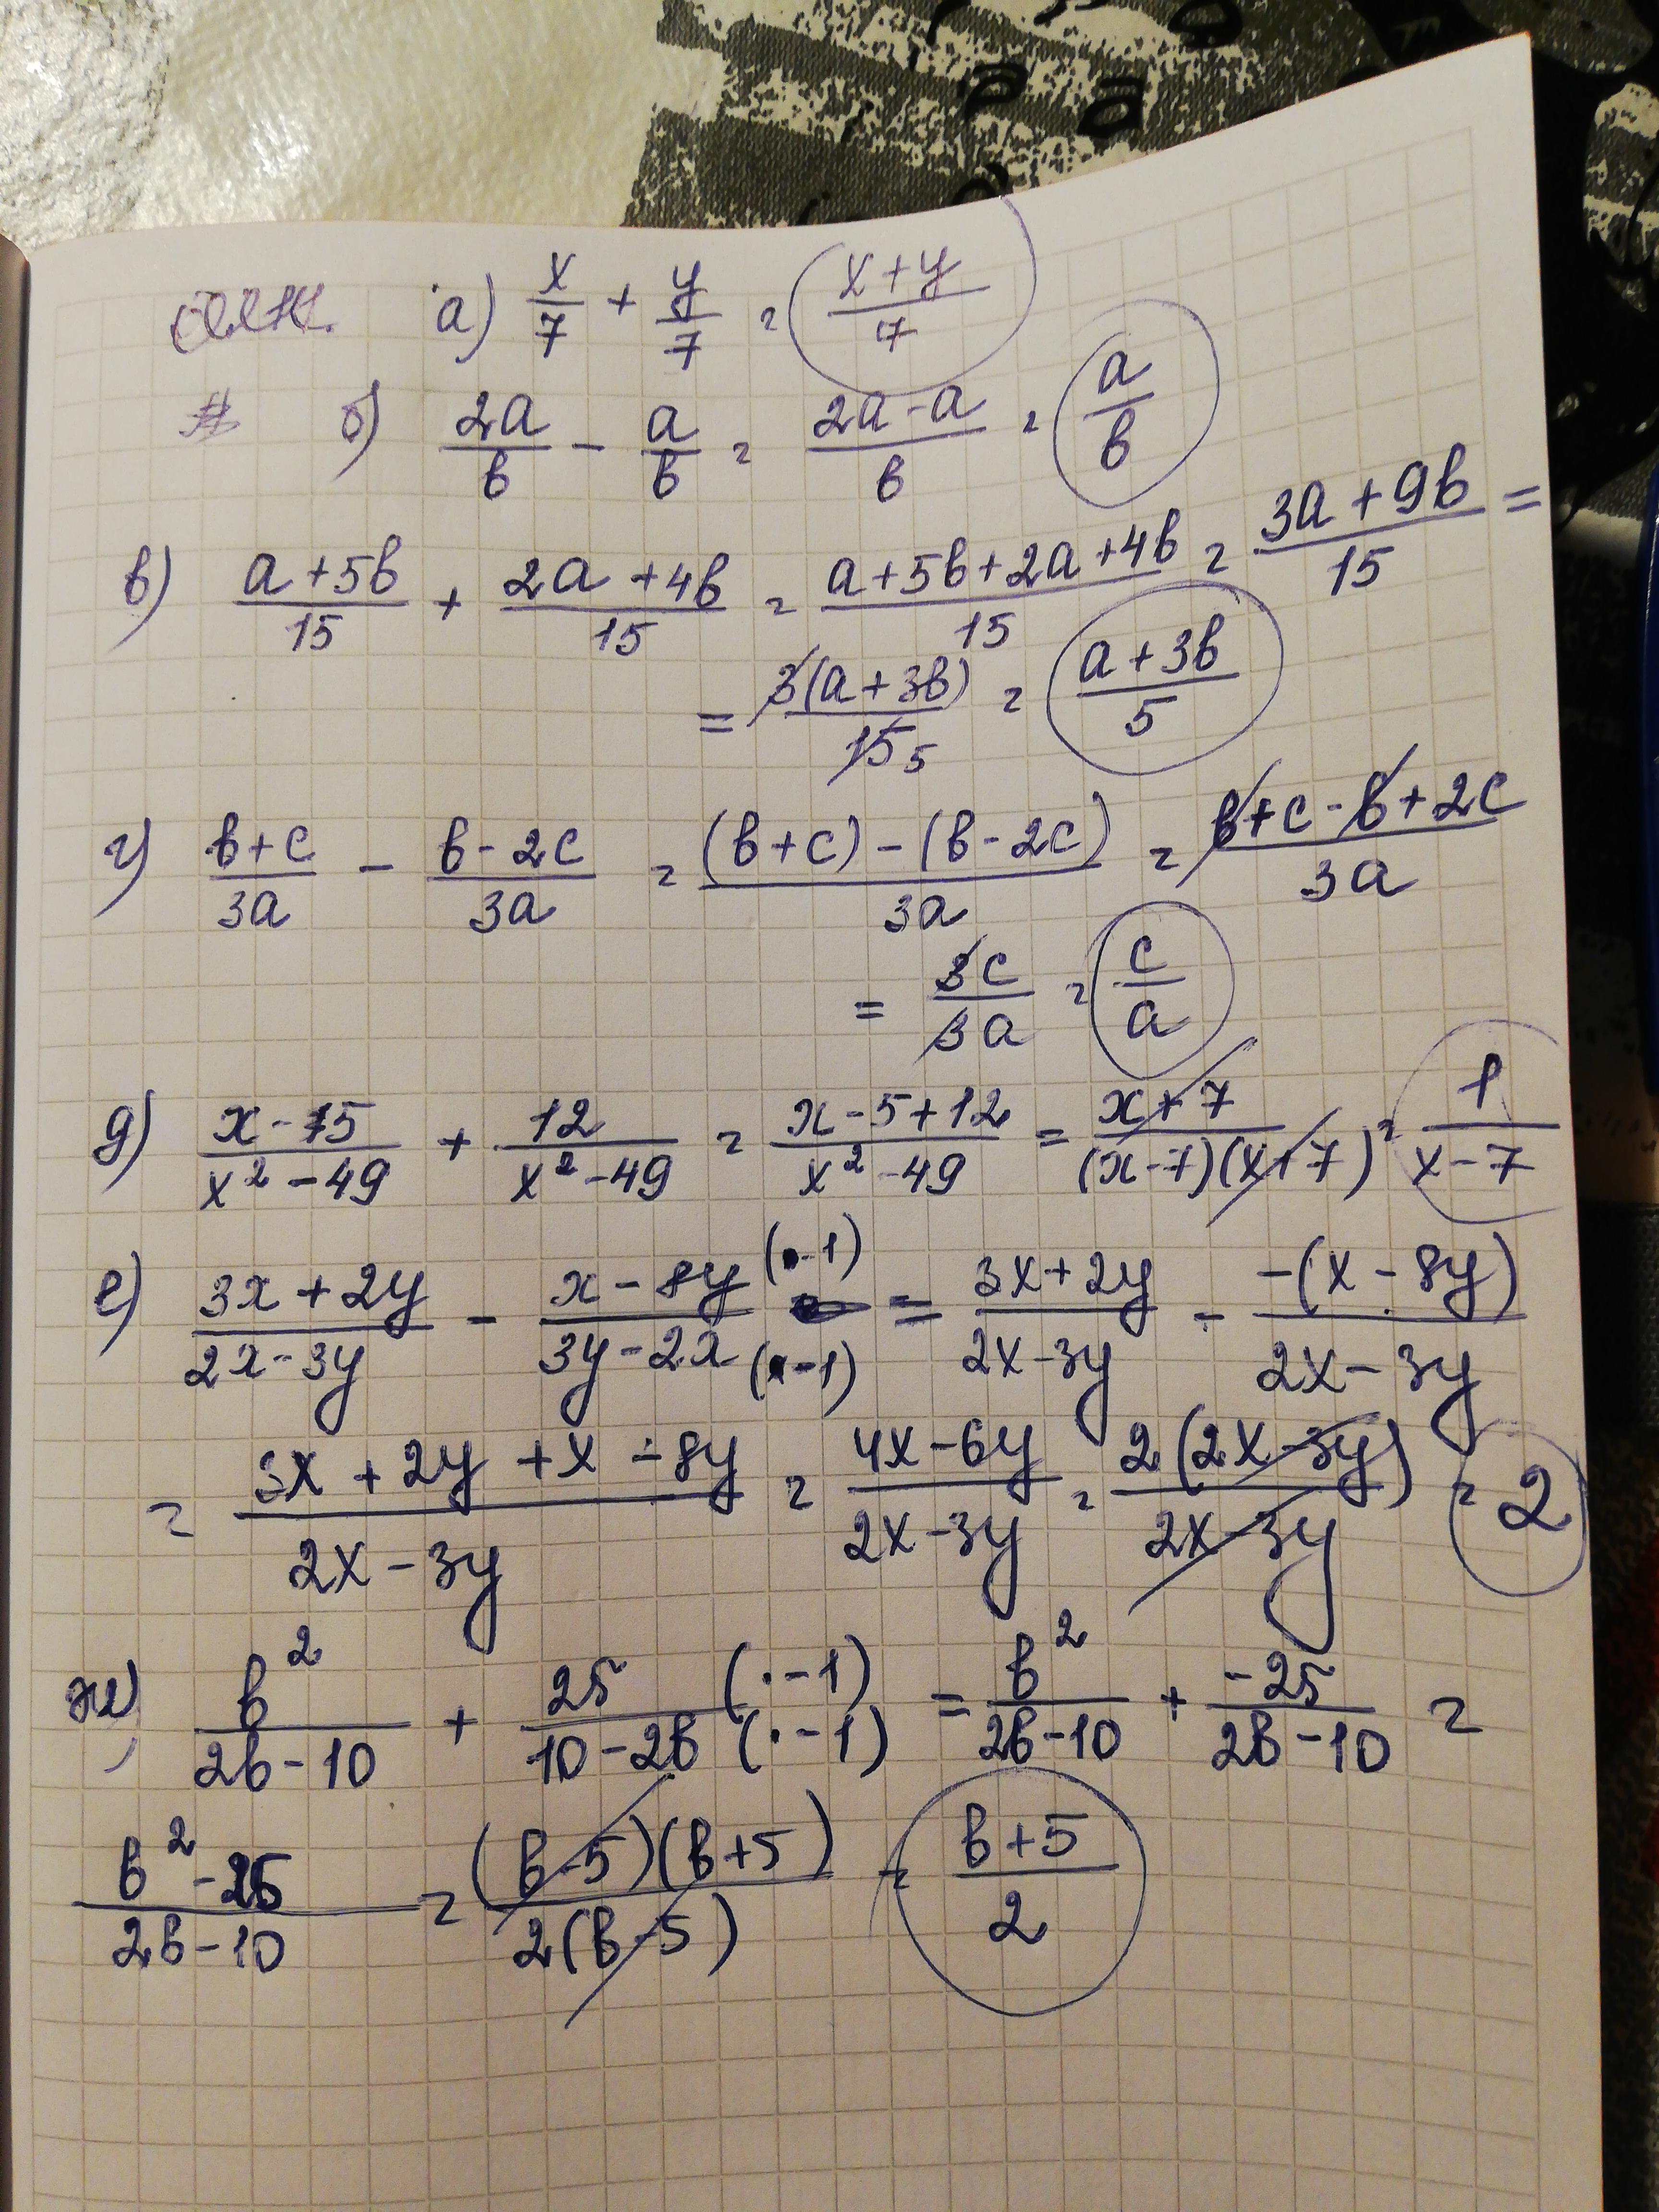 а) x/7 + y/7 = (x+y)/7
б) 2a/b - a/b = (2a-a)/b = a/b
в) (a+5b)/15 + (2a+4b)/15 = (a+5b+2a+4b)/15 = (3a+9b)/15 =
= 3(a+3b)/15 5 = (a+3b)/5
г) (b+c)/3a - (b-2c)/3a = ((b+c)-(b-2c))/3a = (b+c-b+2c)/3a
= 3c/3a = c/a
д) (x-5)/(x²-49) + 12/(x²-49) = (x-5+12)/(x²-49) = (x+7)/((x-7)(x+7)) = 1/(x-7)
е) (3x+2y)/(2x-3y) - (x-8y)/(3y-2x) (·-1)/(·-1) = (3x+2y)/(2x-3y) - -(x-8y)/(2x-3y)
= (3x+2y+x-8y)/(2x-3y) = (4x-6y)/(2x-3y) = 2(2x-3y)/(2x-3y) = 2
ж) b²/(2b-10) + 25/(10-2b) (·-1)/(·-1) = b²/(2b-10) + -25/(2b-10) =
(b²-25)/(2b-10) = (b-5)(b+5)/(2(b-5)) = (b+5)/2